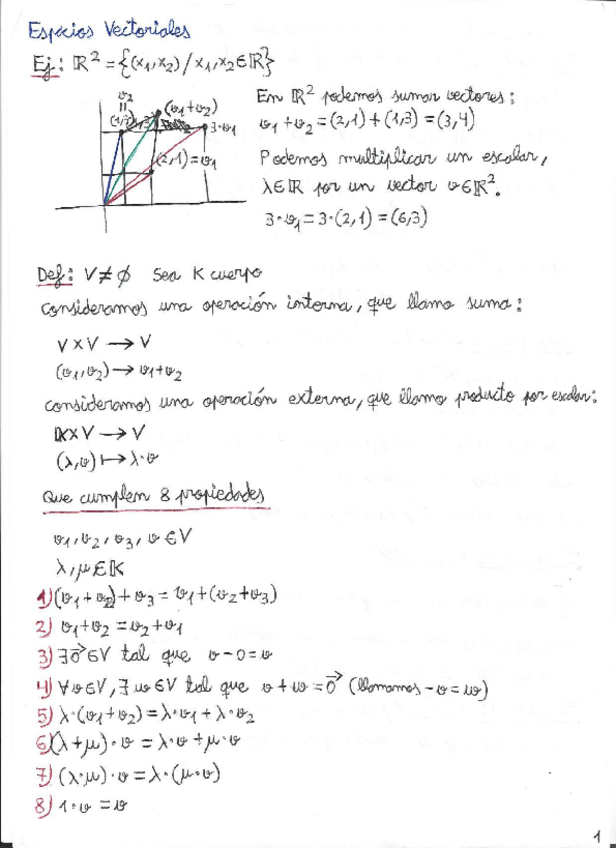 Espacios Vectoriales
Ej: ℝ² = {(x₁,x₂) / x₁,x₂∈ℝ}
v₂
=
(1,3)
(v₁+v₂)
3·v₁
(2,1)=v₁
En ℝ² podemos sumar vectores:
v₁+v₂=(2,1)+(1,3)=(3,4)
Podemos multiplicar un escalar,
λ∈ℝ por un vector v∈ℝ².
3·v₁=3·(2,1)=(6,3)
Def: V≠∅ Sea K cuerpo
consideramos una operación interna, que llamo suma:
V×V → V
(v₁,v₂) → v₁+v₂
consideramos una operación externa, que llamo producto por escalar:
𝕂×V → V
(λ,v) ↦ λ·v
Que cumplen 8 propiedades
v₁,v₂,v₃,v∈V
λ,μ∈𝕂
1) (v₁+v₂)+v₃=v₁+(v₂+v₃)
2) v₁+v₂=v₂+v₁
3) ∃0⃗∈V tal que v-0=v
4) ∀v∈V, ∃w∈V tal que v+w=0⃗ (llamamos -v=w)
5) λ·(v₁+v₂)=λ·v₁+λ·v₂
6) (λ+μ)·v=λ·v+μ·v
7) (λ·μ)·v=λ·(μ·v)
8) 1·v=v
1